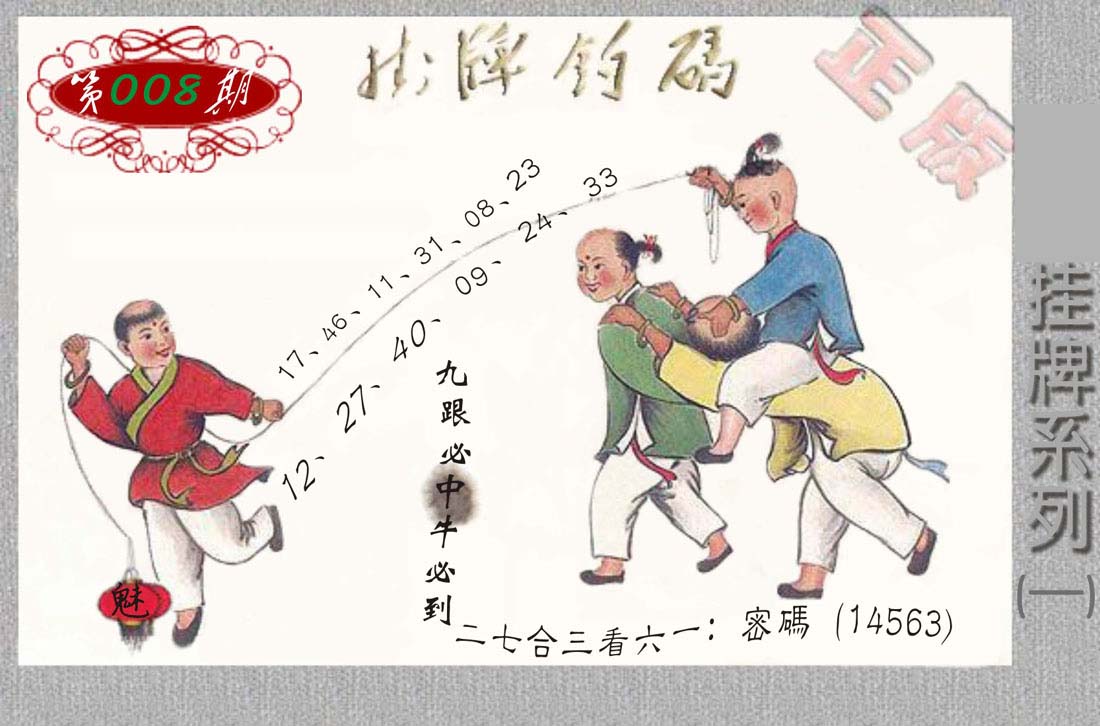 第008期
挂牌钓码
正版
17、46、11、31、08、23
12、27、40、09、24、33
九跟必中牛必到
二七合三看六一：密碼（14563）
魅
挂牌系列(一)